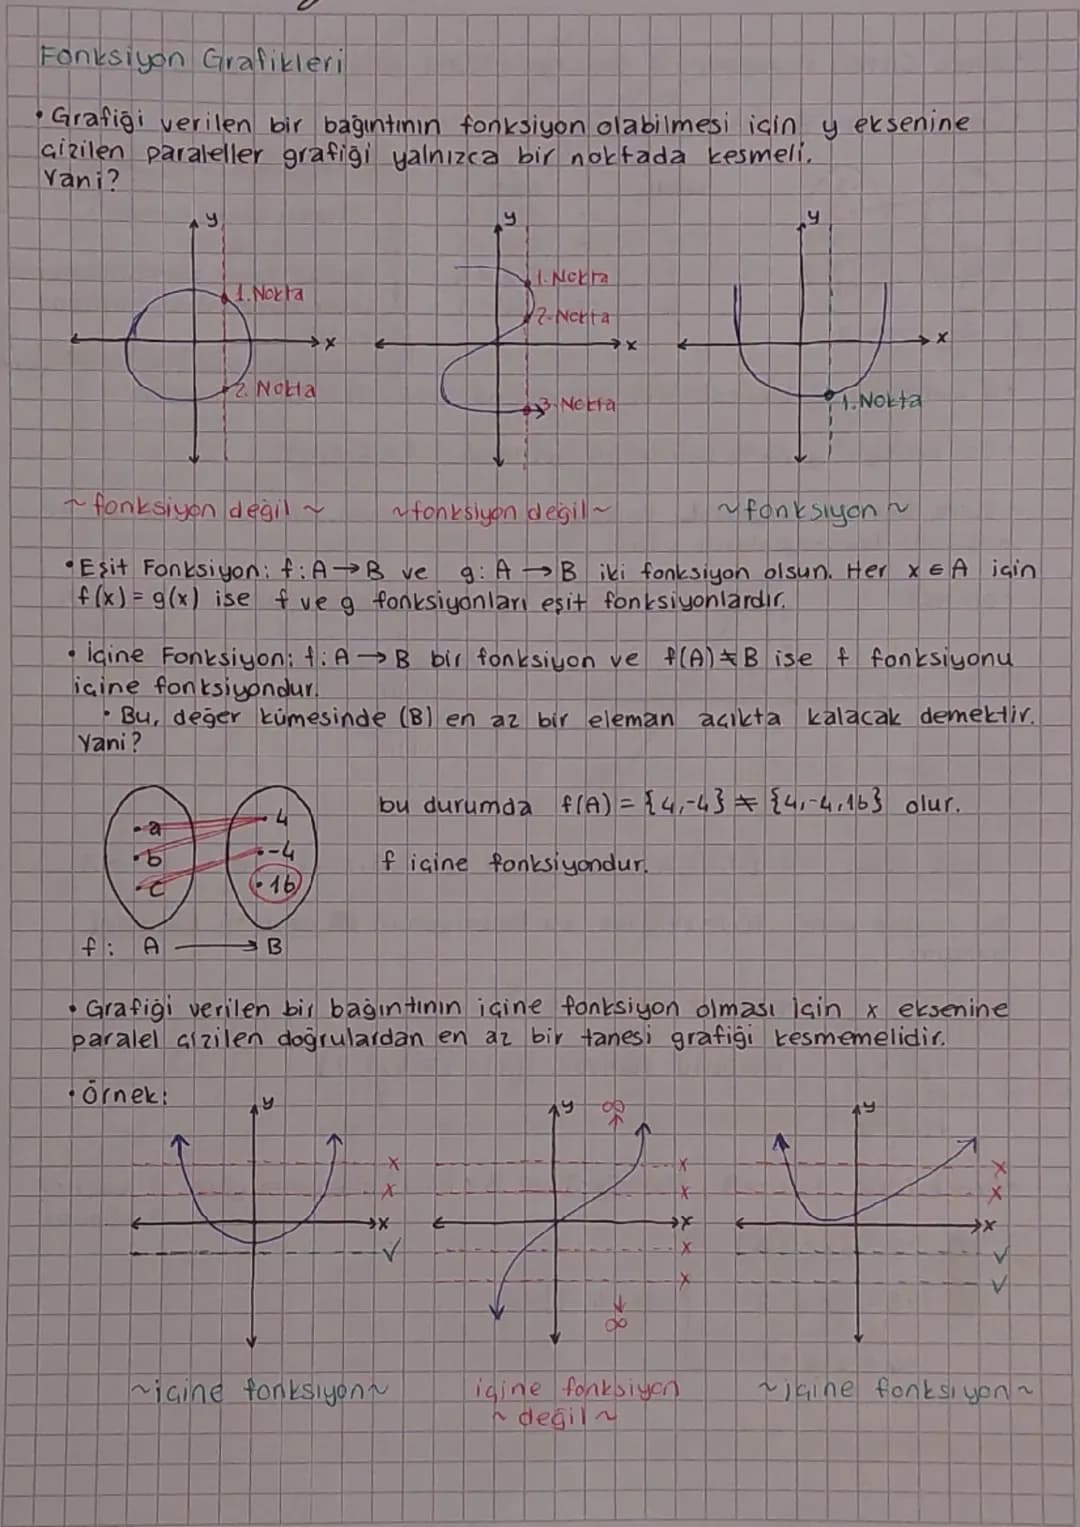 Fonksiyon Grafikleri
• Grafiği verilen bir bağıntının fonksiyon olabilmesi için y eksenine
çizilen paraleller grafiği yalnızca bir noktada kesmeli.
Yani?
y y y
1. Nokta 1. Nokta
2. Nokta
x x x
2. Nokta 3. Nokta 1. Nokta
~ fonksiyon değil ~ ~ fonksiyon değil ~ ~ fonksiyon ~
• Eşit Fonksiyon: f: A → B ve g: A → B iki fonksiyon olsun. Her x ∈ A için
f(x) = g(x) ise f ve g fonksiyonları eşit fonksiyonlardır.
• İçine Fonksiyon: f: A → B bir fonksiyon ve f(A) ≠ B ise f fonksiyonu
içine fonksiyondur.
• Bu, değer kümesinde (B) en az bir eleman açıkta kalacak demektir.
Yani?
• a • 4 bu durumda f(A) = {4,-4} ≠ {4,-4,16} olur.
• b • -4 f içine fonksiyondur.
• c • 16
f: A → B
• Grafiği verilen bir bağıntının içine fonksiyon olması için x eksenine
paralel çizilen doğrulardan en az bir tanesi grafiği kesmemelidir.
• Örnek:
y y ∞ y
x x x
x x x
x x x
✓ x ✓
x ✓
∞
~ içine fonksiyon ~ içine fonksiyon ~ içine fonksiyon ~
~ değil ~